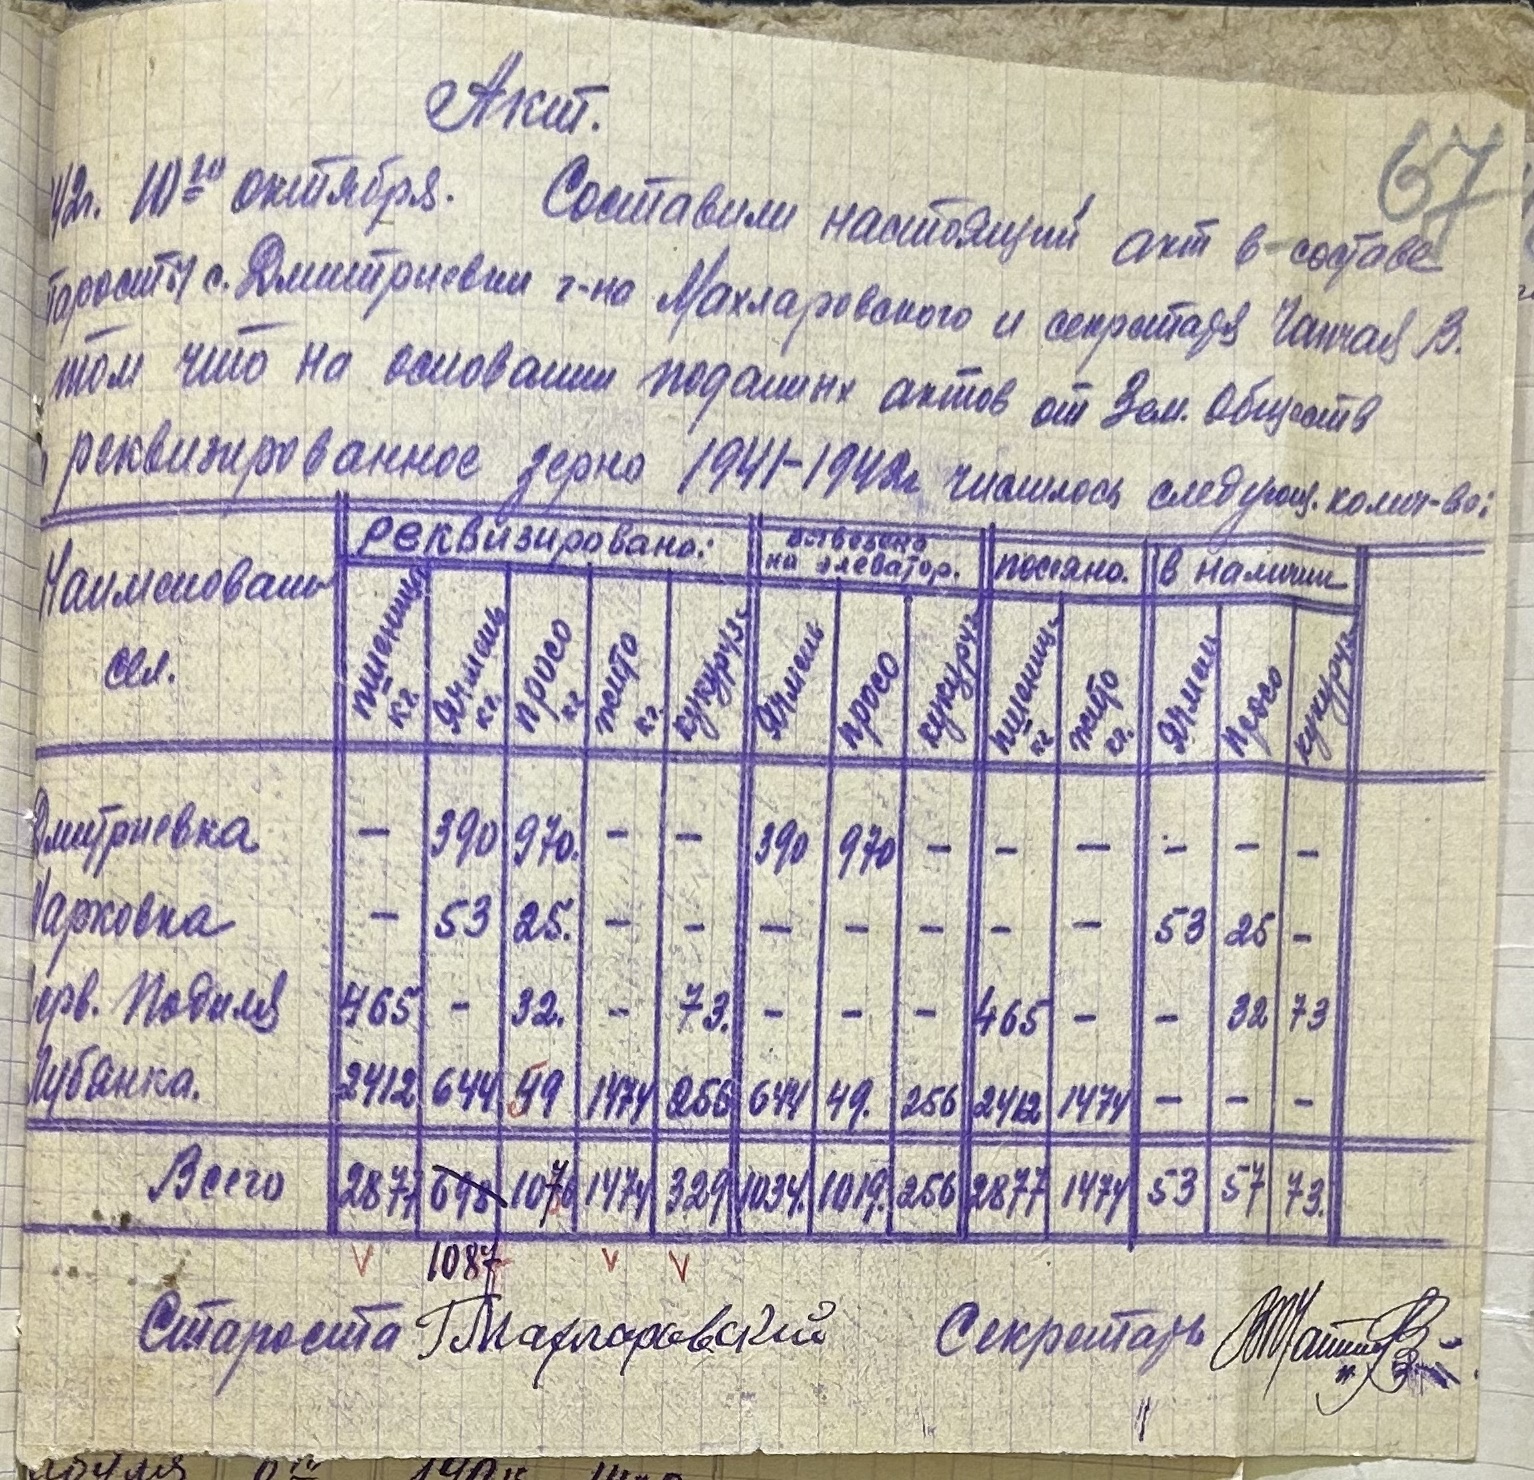 67
Акт.
42г. 10го октября. Составили настоящий акт в составе
таросты с. Дмитриевки г-на Махларовского и секретаря Чапчая В.
том что на основании поданых актов от Зем. Обществ
реквизированное зерно 1941-1942г числилось следующ. колич-во:
Наименовань сел. реквизировано: отвезено на элеватор. посеяно. в наличии
пшеница кг. ячмень кг. просо кг жито кг. кукуруз. ячмень просо кукуруз пшениц. кг жито кг. ячмен просо кукуруз
Дмитриевка — 390 970. — — 390 970 — — — — — —
Марковка — 53 25. — — — — — — — 53 25 —
ерв. Подиля 465 — 32. — 73. — — — 465 — — 32 73
Лубянка. 2412 644 49 1474 256 644 49. 256 2412 1474 — — —
Всего 2877 698 1076 1474 329 1034. 1019. 256 2877 1474 53 57 73.
1087
Староста Секретарь